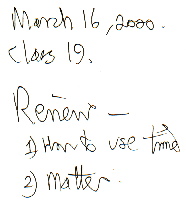 March 16, 2000.
Class 19.
Review —
1) How to use time
2) Matter.